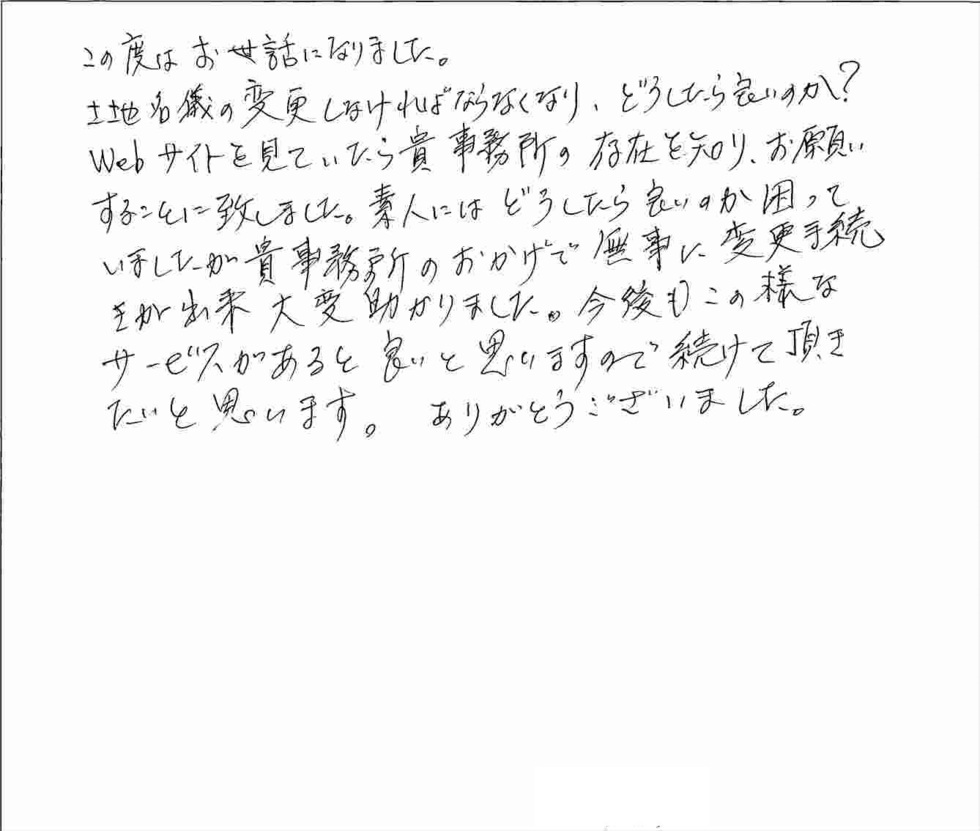 この度はお世話になりました。
土地名儀の変更しなければならなくなり、どうしたら良いのか?
Webサイトを見ていたら貴事務所の存在を知り、お願い
することに致しました。素人にはどうしたら良いのか困って
いましたが貴事務所のおかげで無事に変更手続
きが出来大変助かりました。今後もこの様な
サービスがあると良いと思いますので続けて頂き
たいと思います。 ありがとうございました。